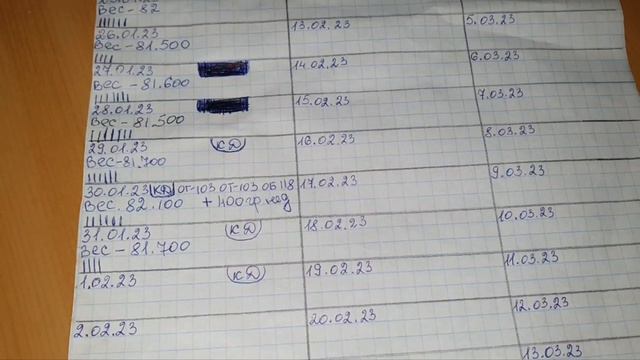 Вес - 82
26.01.23
Вес - 81.500
27.01.23
Вес - 81.600
28.01.23
Вес - 81.500
29.01.23 КД
Вес - 81.700
30.01.23 КД ОТ-103 ОТ-103 ОБ 118
Вес. 82.100 + 400гр. нед
31.01.23 КД
Вес - 81.700
1.02.23 КД
2.02.23
13.02.23
14.02.23
15.02.23
16.02.23
17.02.23
18.02.23
19.02.23
20.02.23
5.03.23
6.03.23
7.03.23
8.03.23
9.03.23
10.03.23
11.03.23
12.03.23
13.03.23